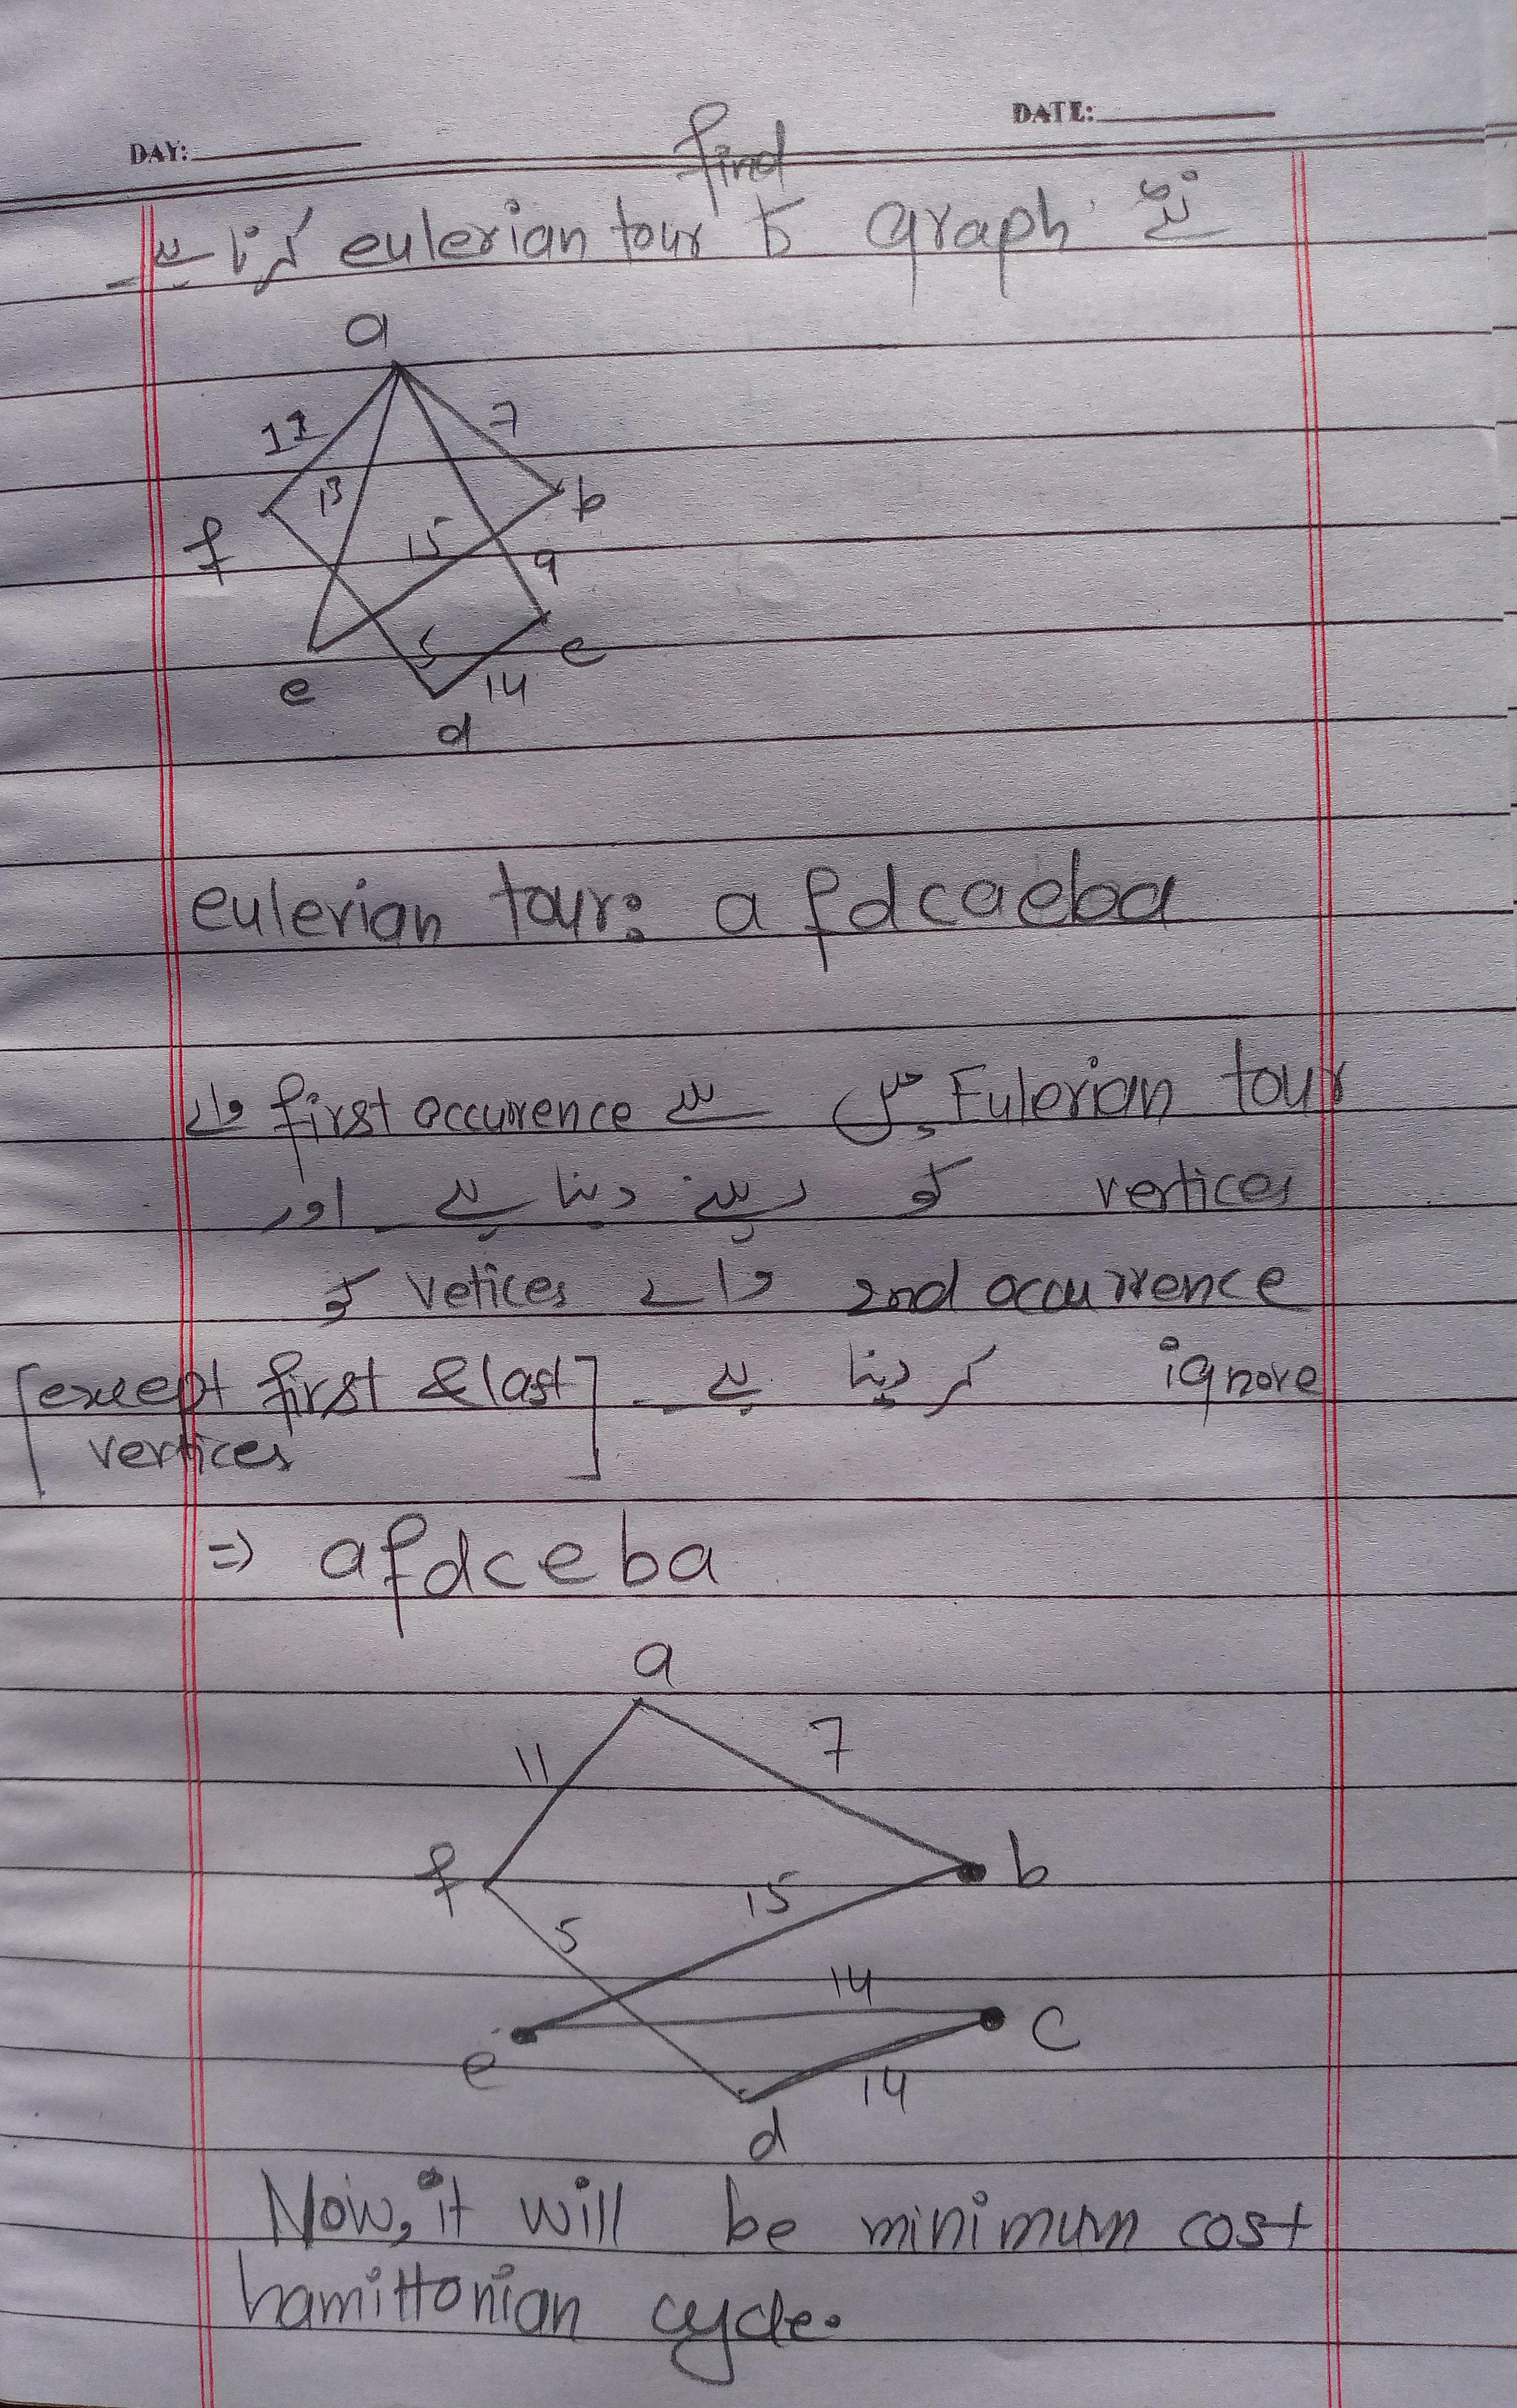 DAY:
DATE:
find
نے graph کا eulerian tour کرنا ہے۔
a
11
7
13
b
f
15
9
5
c
e
14
d
eulerian tour: a f d c a e b a
Eulerian tour میں سے first occurence والے
vertices کو رہنے دینا ہے۔ اور
2nd occurrence والے vetices کو
ignore کر دینا ہے۔ [except first & last
vertices]
⇒ a f d c e b a
a
11
7
f
b
15
5
14
e
c
14
d
Now, it will be minimum cost
hamiltonian cycle.